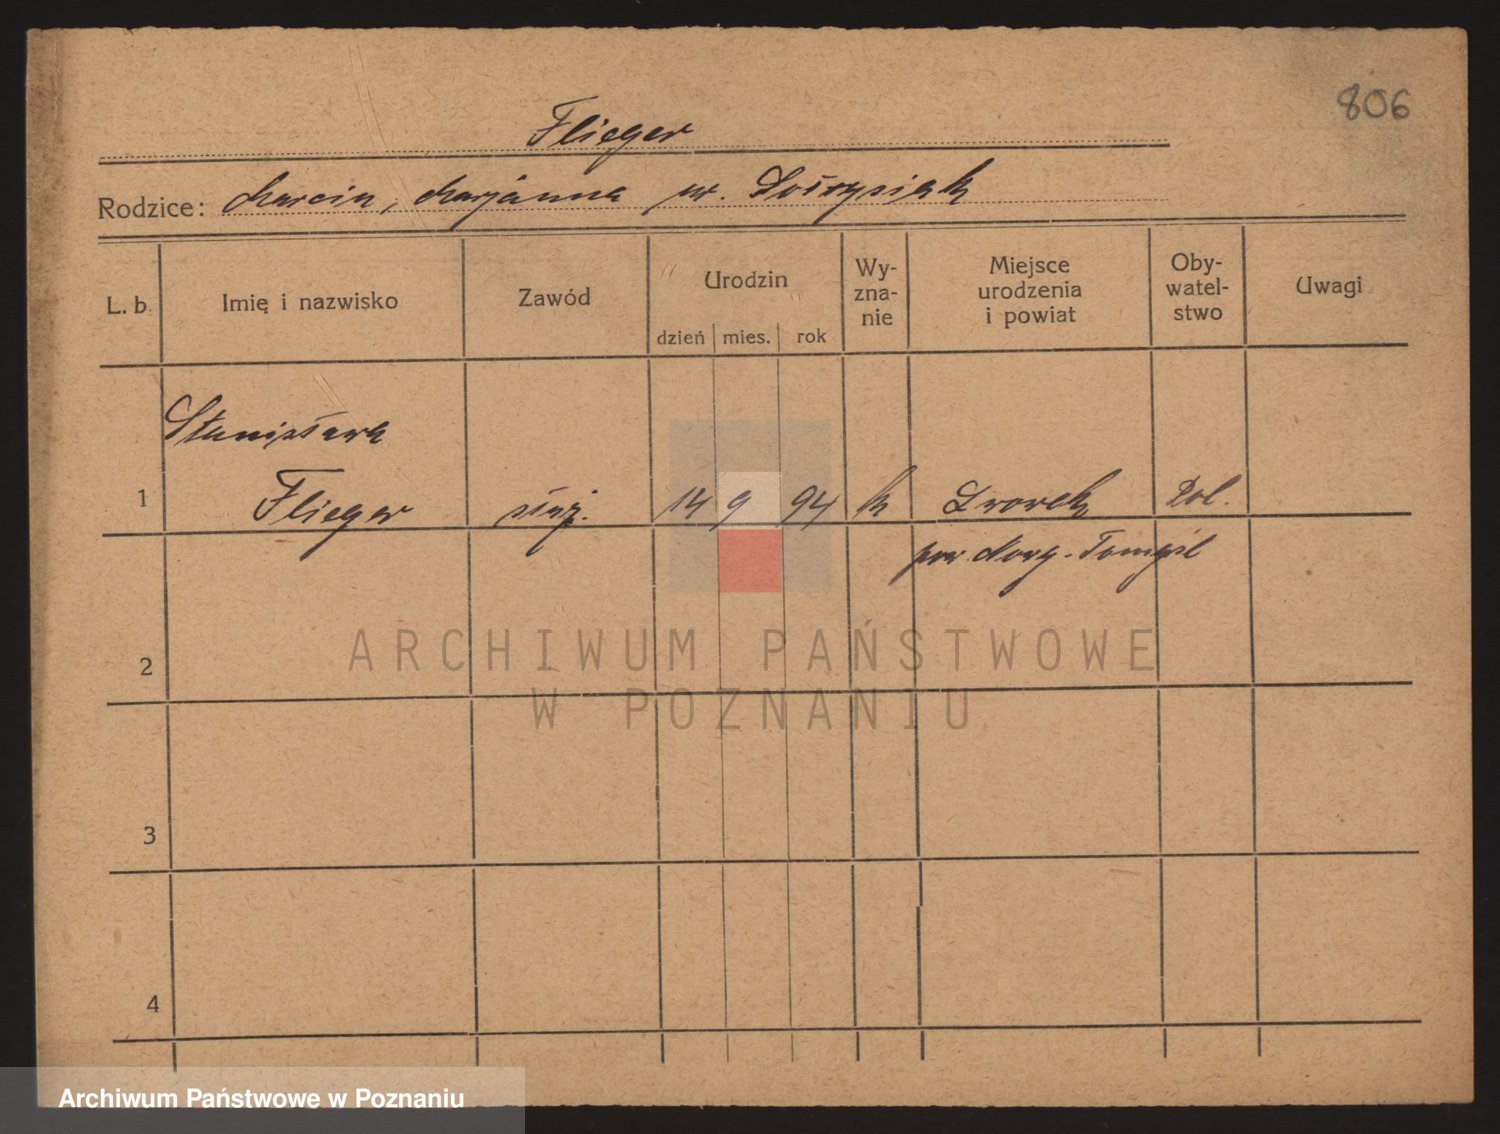 806
Flieger
Rodzice: Marcin, Marjanna ur.
L. b. Imię i nazwisko Zawód Urodzin dzień mies. rok Wy-zna-nie Miejsce urodzenia i powiat Oby-watel-stwo Uwagi
Stanisława
1 Flieger służ. 14 9 94 k Lwówek Pol.
pow. Nowy-Tomyśl
2
ARCHIWUM PAŃSTWOWE
W POZNANIU
3
4
Archiwum Państwowe w Poznaniu